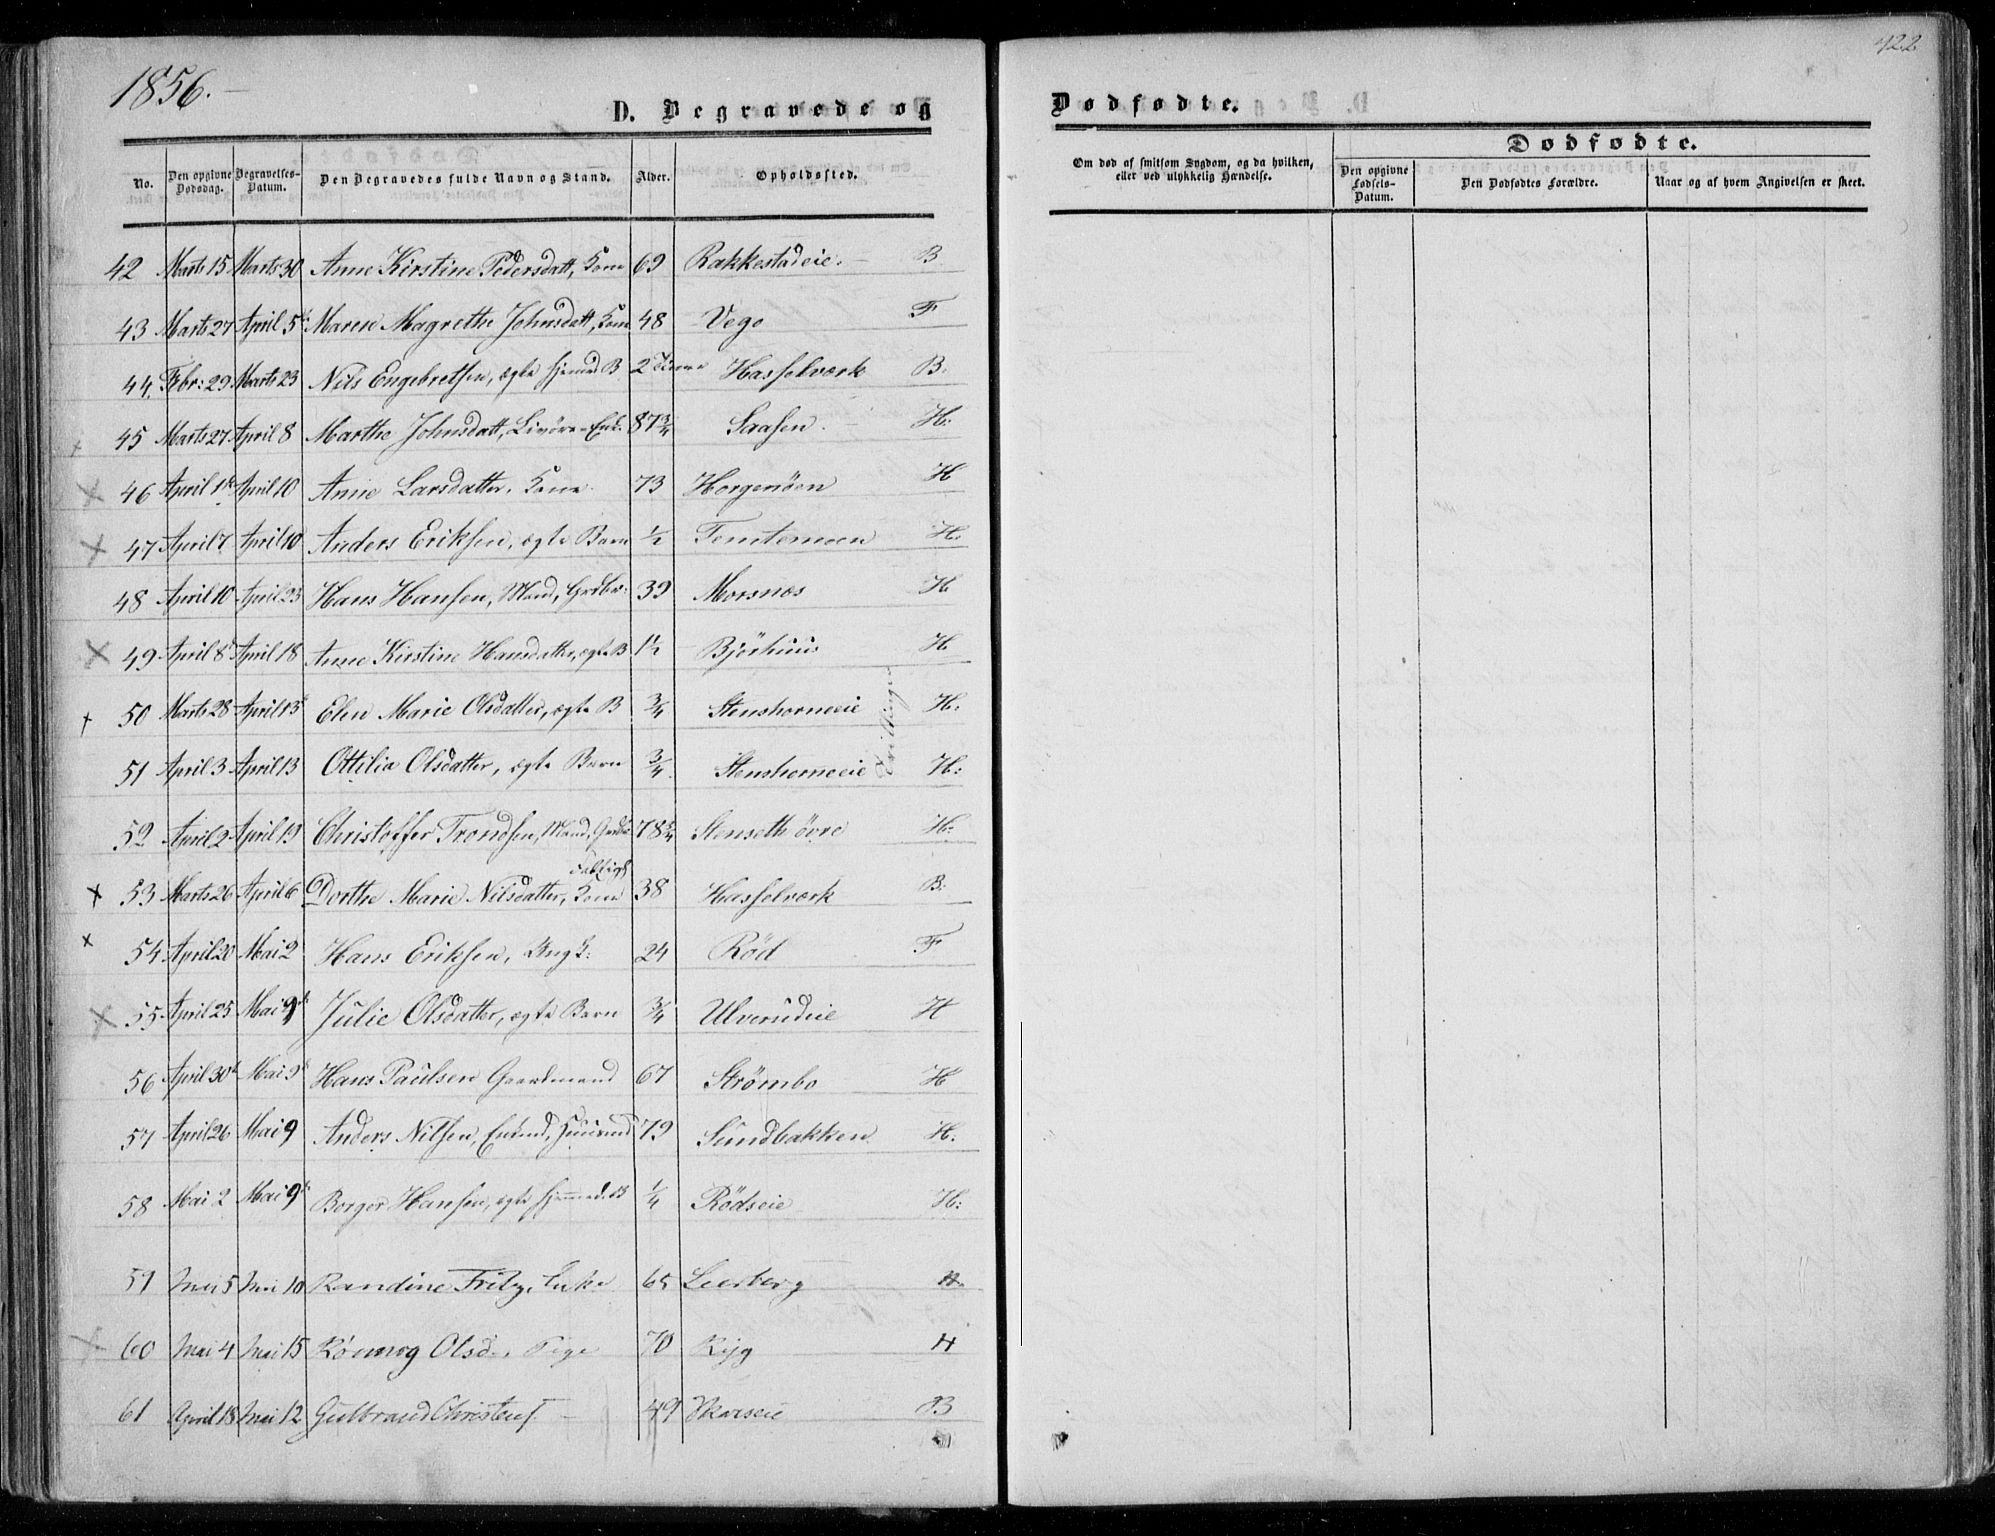 422
1856.
D. Begravede og
Dødfødte.
No.
Den opgivne Dødsdag.
Begravelses-Datum.
Den Begravedes fulde Navn og Stand.
Alder.
Opholdssted.
Om død af smitsom Sygdom, og da hvilken, eller ved ulykkelig Hændelse.
Dødfødte.
Den opgivne Fødsels-Datum.
Den Dødfødtes Forældre.
Naar og af hvem Angivelsen er skeet.
42 Marts 15 Marts 30 Anne Kirstine Pedersdatt, Kone 69 Rakkestadeie. B
43 Marts 27 April 5 Maren Magrethe Johnsdatt, Kone 48 Vego F
44. Febr: 29 Marts 23 Nils Engebretsen, ægte hjemd. B 2 Timer Hasselværk B:
45 Marts 27 April 8 Marthe Johnsdatt, Livöre-Enke 87 3/4 Saasen. H:
46 April 1 April 10 Anne Larsdatter, Kone 73 Horgenöen H
47 April 7 April 10 Anders Eriksen, ægte Barn 1/2 Temtemoen H:
48 April 10 April 23 Hans Hansen, Mand, Grdbr: 39 Morsnæs H
49 April 8 April 18 Anne Kirstine Hansdatter, ægte B 1 1/2 Bjørhuus H
50 Marts 28 April 13 Elen Marie Olsdatter, ægte B 3/4 Stenshorneeie H:
Tvillinger
51 April 3 April 13 Ottilia Olsdatter, ægte Barn 3/4 Stenshorneeie H:
52 April 2 April 13 Christoffer Trondsen, Mand, Grdbr 78 3/4 Stenseth övre H:
53 Marts 26 April 6 Dorthe Marie Nilsdatter, Kone fattigt 38 Hasselværk B:
54 April 20 Mai 2 Hans Eriksen, Ungk: 24 Rød F
55 April 25 Mai 9 Julie Olsdatter, ægte Barn 3/4 Ulverudeie H
56 April 30 Mai 9 Hans Paulsen Gaardmand 67 Strømbo H
57 April 26 Mai 9 Anders Nilsen, Enkmd, Huusmd 79 Sundbakken H.
58 Mai 2 Mai 9 Borger Hansen, ægte hjemmed. B 1/4 Rödseie H:
59 Mai 5 Mai 10 Randine Fritz, Enke 65 Leerberg H
60 Mai 4 Mai 15 Rönnog Olsd., Pige 70 Ryg H
61 April 18 Mai 12 Gulbrand Christens. 49 Skarseie B